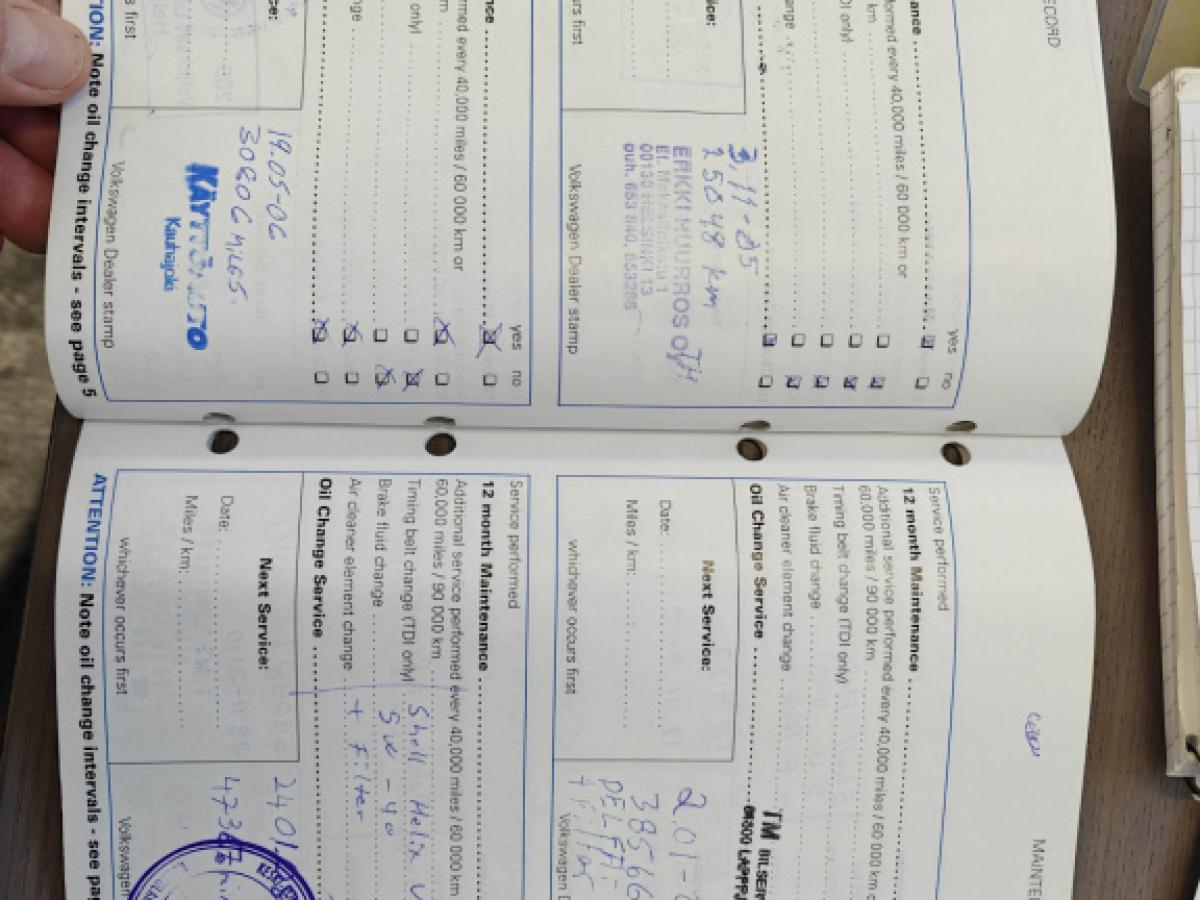 ECORD
yes no
ance
formed every 40,000 miles / 60 000 km or
km
I only)
ange
3.11-05
25048 km
ERKKI MUURROS OY
Et. Makasiinikatu 1
00130 HELSINKI 13
puh. 653 840, 653286
vice:
rs first
Volkswagen Dealer stamp
yes no
nce
rmed every 40,000 miles / 60 000 km or
m
only)
nge
19.05-06
30806 MILES.
KÄYTTÖAUTO
Kauhajoki
ce:
s first
Volkswagen Dealer stamp
TION: Note oil change intervals - see page 5
MAINTE
Service performed
12 month Maintenance
Additional service performed every 40,000 miles / 60 000 km o
60,000 miles / 90 000 km
Timing belt change (TDI only)
Brake fluid change
Air cleaner element change
Oil Change Service
TM BILSER
Next Service:
Date:
Miles / km:
whichever occurs first
201-
38566
+ Filter
Volkswagen D
Service performed
12 month Maintenance
Additional service performed every 40,000 miles / 60 000 km
60,000 miles / 90 000 km
Timing belt change (TDI only) Shell Helix
Brake fluid change 5w-40
Air cleaner element change + Filter
Oil Change Service
Next Service:
Date:
Miles / km:
whichever occurs first
2401
Volkswagen
ATTENTION: Note oil change intervals - see pag